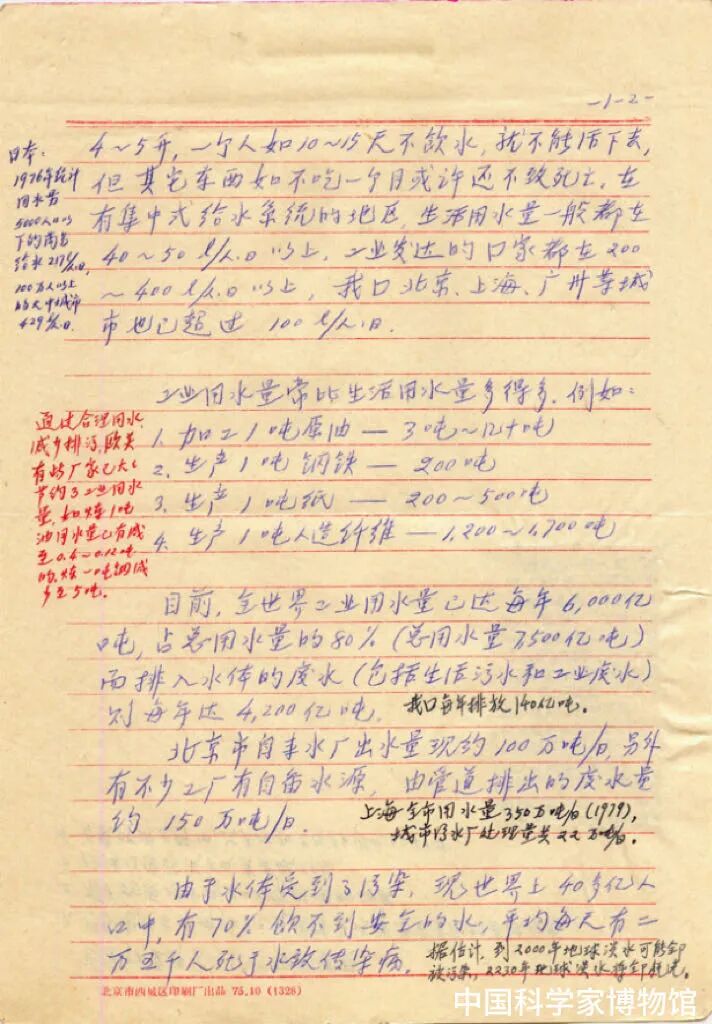 -1-2-
4～5升，一个人如10～15天不饮水，就不能活下去，
但其它东西如不吃一个月或许还不致死亡。在
有集中式给水系统的地区，生活用水量一般都在
40～50 l/人.日以上，工业发达的口家都在200
～400 l/人.日以上，我口北京、上海、广州等城
市也已超过 100 l/人.日.
日本：
1976年统计
用水量
5000人口以
下的
给水217 l/人.日,
100万人以上
的大中城市
429 l/人.日.
工业用水量常比生活用水量多得多. 例如：
1. 加工1吨原油 — 3吨～几十吨
2. 生产1吨钢铁 — 200吨
3. 生产1吨纸 — 200～500吨
4. 生产1吨人造纤维 — 1,200～1,700吨
通过合理用水,
减少排污,欧美
有些厂家已大大
节约了工业用水
量,如炼1吨
油用水量已有减
至0.4～0.12吨
的,炼一吨钢减
少至5吨。
目前，全世界工业用水量已达每年6,000亿
吨，占总用水量的80%（总用水量7,500亿吨）
而排入水体的废水（包括生活污水和工业废水）
则每年达 4,200亿吨. 我口每年排放140亿吨。
北京市自来水厂出水量现约100万吨/日，另外
有不少工厂有自备水源，由管道排出的废水量
约 150万吨/日.
上海全市用水量350万吨/日(1979),
城市污水厂处理量共22万吨/日.
由于水体受到了污染，现世界上40多亿人
口中，有70%饮不到安全的水，平均每天有二
万五千人死于水致传染病。
据估计，到2000年地球淡水可能全部
被污染，2230年地球淡水将全部耗尽。
北京市西城区印刷厂出品 75.10 (1328)
中国科学家博物馆